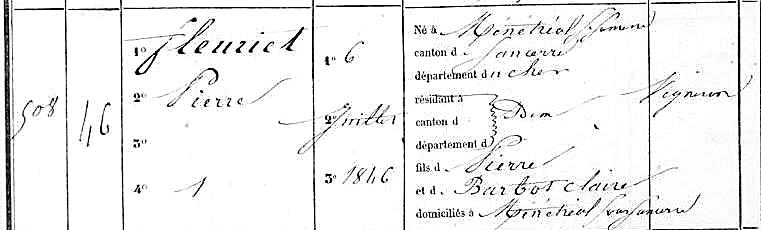 508
46
1º Fleuriet
2º Pierre
3º
4º 1
1º 6
2º Juillet
3º 1846
Né à Ménétréol s/ Sancerre
canton d Sancerre
département du cher
résidant à
canton d Dem
département d
fils d Pierre
et d Barbot Claire
domiciliés à Ménétréol sous Sancerre
Vigneron